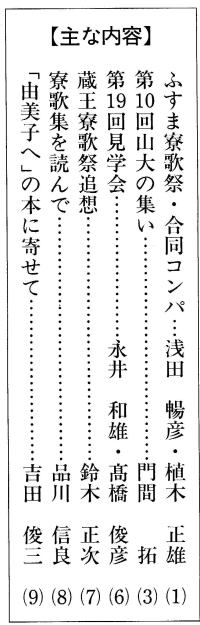 【主な内容】
ふすま寮歌祭・合同コンパ…浅田 暢彦・植木 正雄 (1)
第10回山大の集い……………………………門間 拓 (3)
第19回見学会………………永井 和雄・髙橋 俊彦 (6)
蔵王寮歌祭追想……………………………鈴木 正次 (7)
寮歌集を読んで……………………………品川 信良 (8)
「由美子へ」の本に寄せて…………………吉田 俊三 (9)